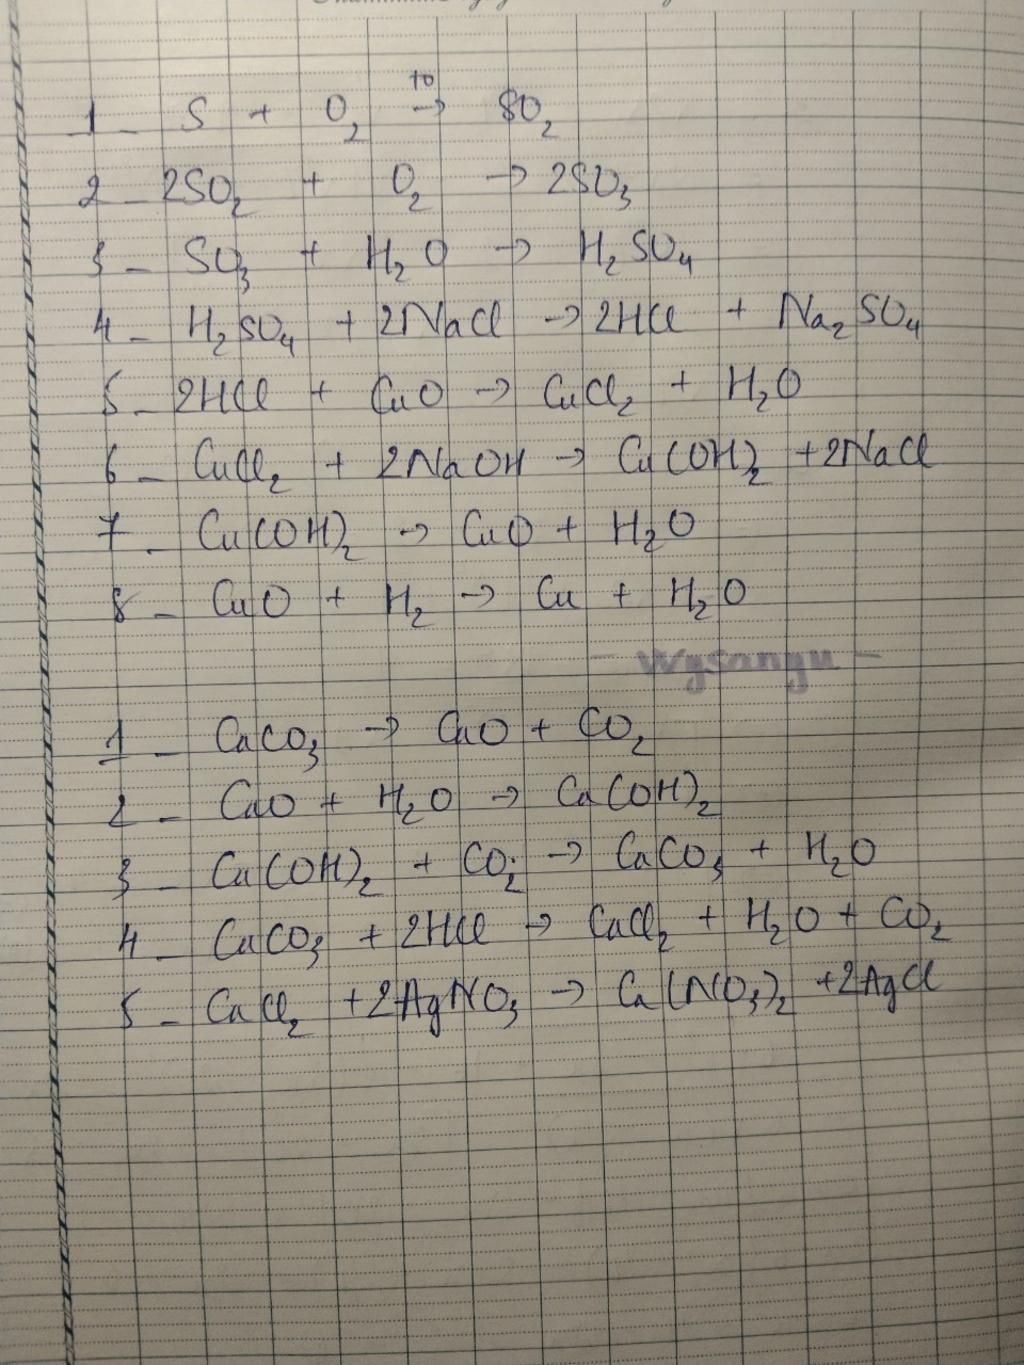 1 - S + O₂ →ᵗᵒ SO₂
2 - 2SO₂ + O₂ → 2SO₃
3 - SO₃ + H₂O → H₂SO₄
4 - H₂SO₄ + 2NaCl → 2HCl + Na₂SO₄
5 - 2HCl + CuO → CuCl₂ + H₂O
6 - CuCl₂ + 2NaOH → Cu(OH)₂ + 2NaCl
7 - Cu(OH)₂ → CuO + H₂O
8 - CuO + H₂ → Cu + H₂O
- Wysangu -
1 - CaCO₃ → CaO + CO₂
2 - CaO + H₂O → Ca(OH)₂
3 - Ca(OH)₂ + CO₂ → CaCO₃ + H₂O
4 - CaCO₃ + 2HCl → CaCl₂ + H₂O + CO₂
5 - CaCl₂ + 2AgNO₃ → Ca(NO₃)₂ + 2AgCl